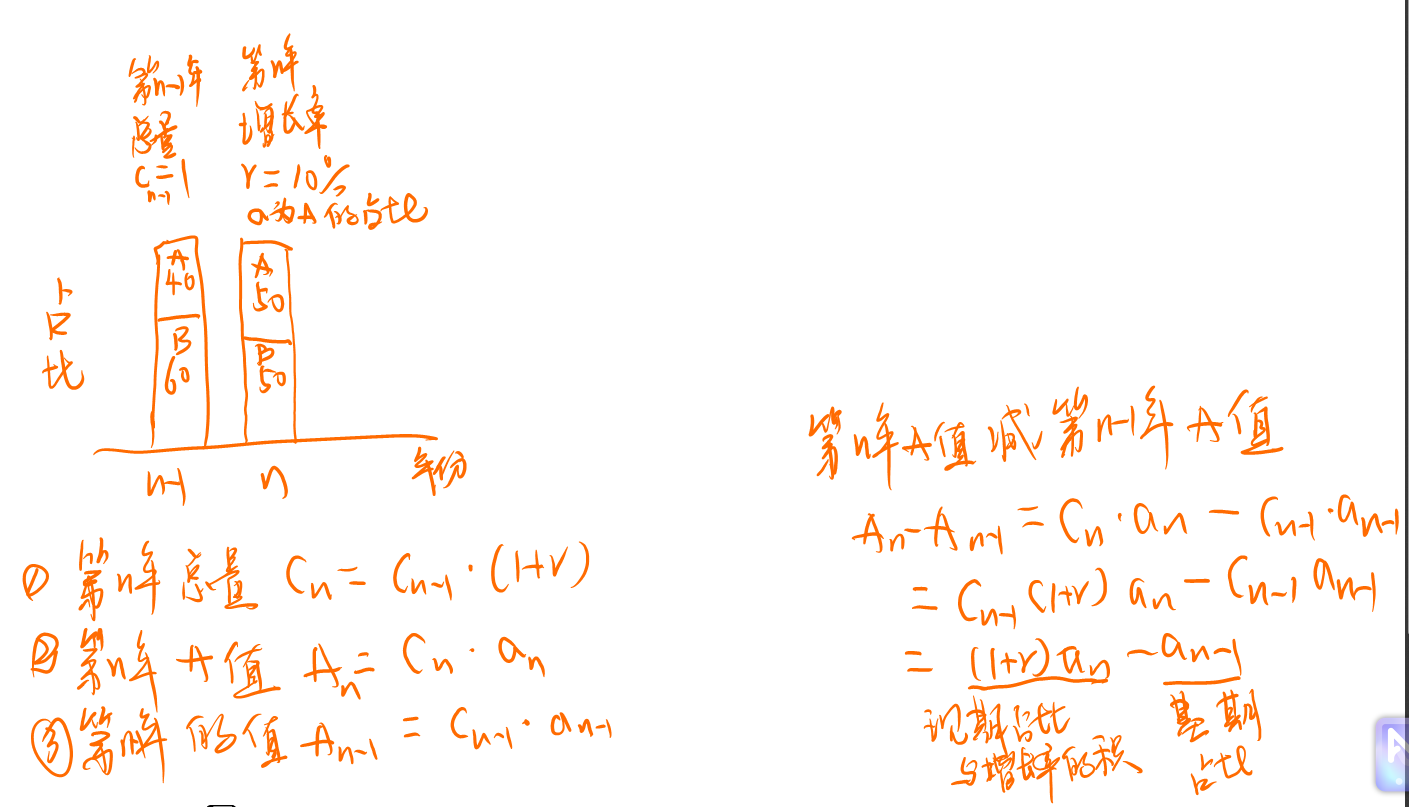 第n-1年
总量
Cn-1=1
第n年
增长率
r=10%
a为A的占比
占比
A
40
B
60
A
50
B
50
n-1
n
年份
① 第n年总量 Cn=Cn-1·(1+r)
② 第n年A值 An=Cn·an
③ 第n年的值 An-1=Cn-1·an-1
第n年A值减第n-1年A值
An-An-1=Cn·an-Cn-1·an-1
=Cn-1(1+r)an-Cn-1an-1
=(1+r)an-an-1
现期占比
与增长率的积
基期
占比